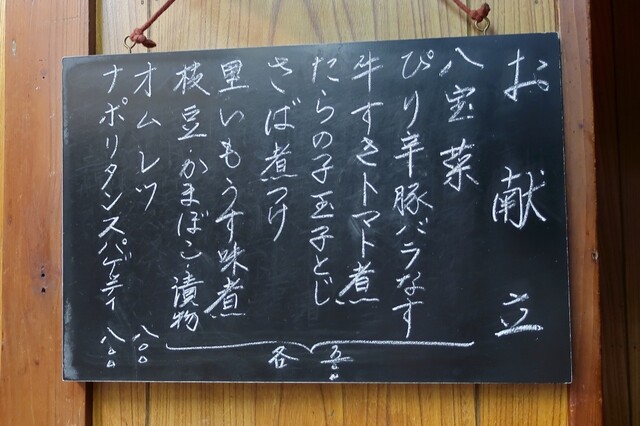 お献立
八宝菜
ぴり辛豚バラなす
牛すきトマト煮
たらの子玉子とじ
さば煮つけ
里いもうす味煮
枝豆・かまぼこ・漬物
各五〇〇
オムレツ 八〇〇
ナポリタンスパゲッティ 八〇〇